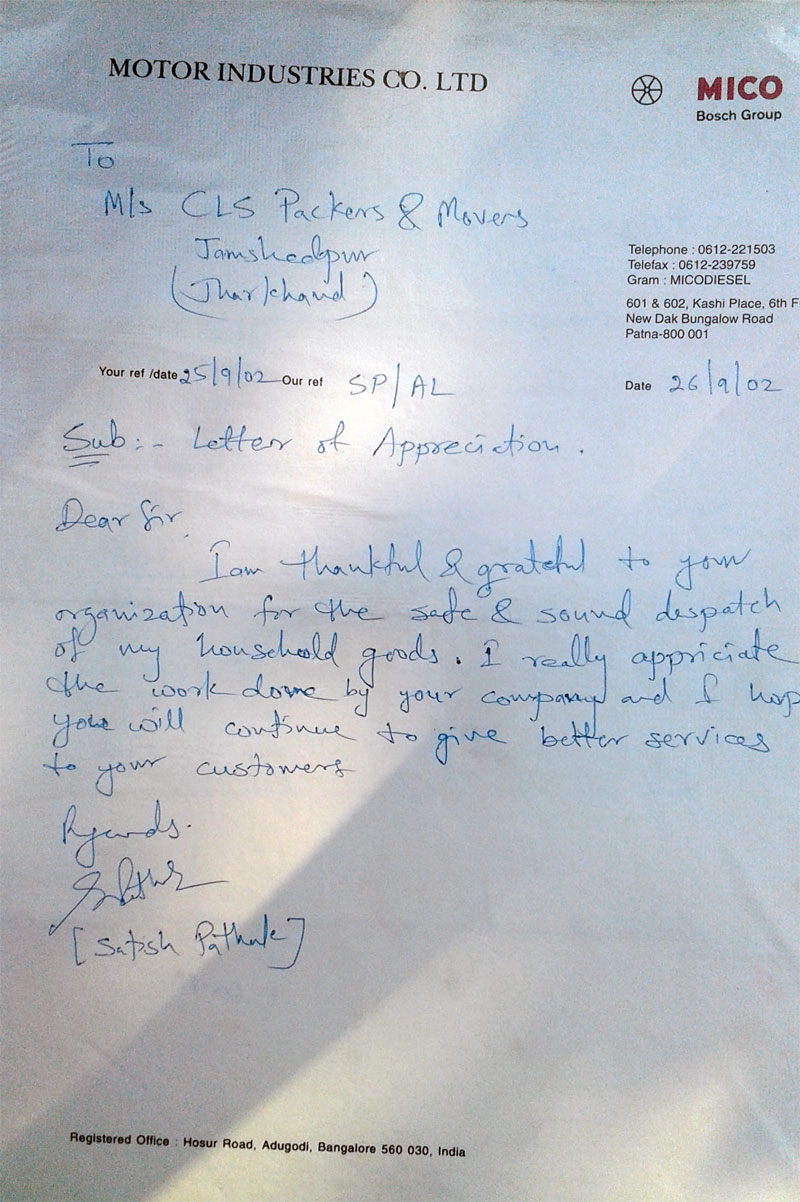 MOTOR INDUSTRIES CO. LTD
MICO
Bosch Group
To
M/s CLS Packers & Movers
Jamshedpur
(Jharkhand)
Telephone : 0612-221503
Telefax : 0612-239759
Gram : MICODIESEL
601 & 602, Kashi Place, 6th F
New Dak Bungalow Road
Patna-800 001
Your ref /date 25/9/02 Our ref SP/AL Date 26/9/02
Sub:- Letter of Appreciation.
Dear Sir,
I am thankful & grateful to your
organization for the safe & sound despatch
of my household goods. I really appriciate
the work done by your company and I hop
you will continue to give better services
to your customers
Regards.
[Satish Pathak]
Registered Office : Hosur Road, Adugodi, Bangalore 560 030, India